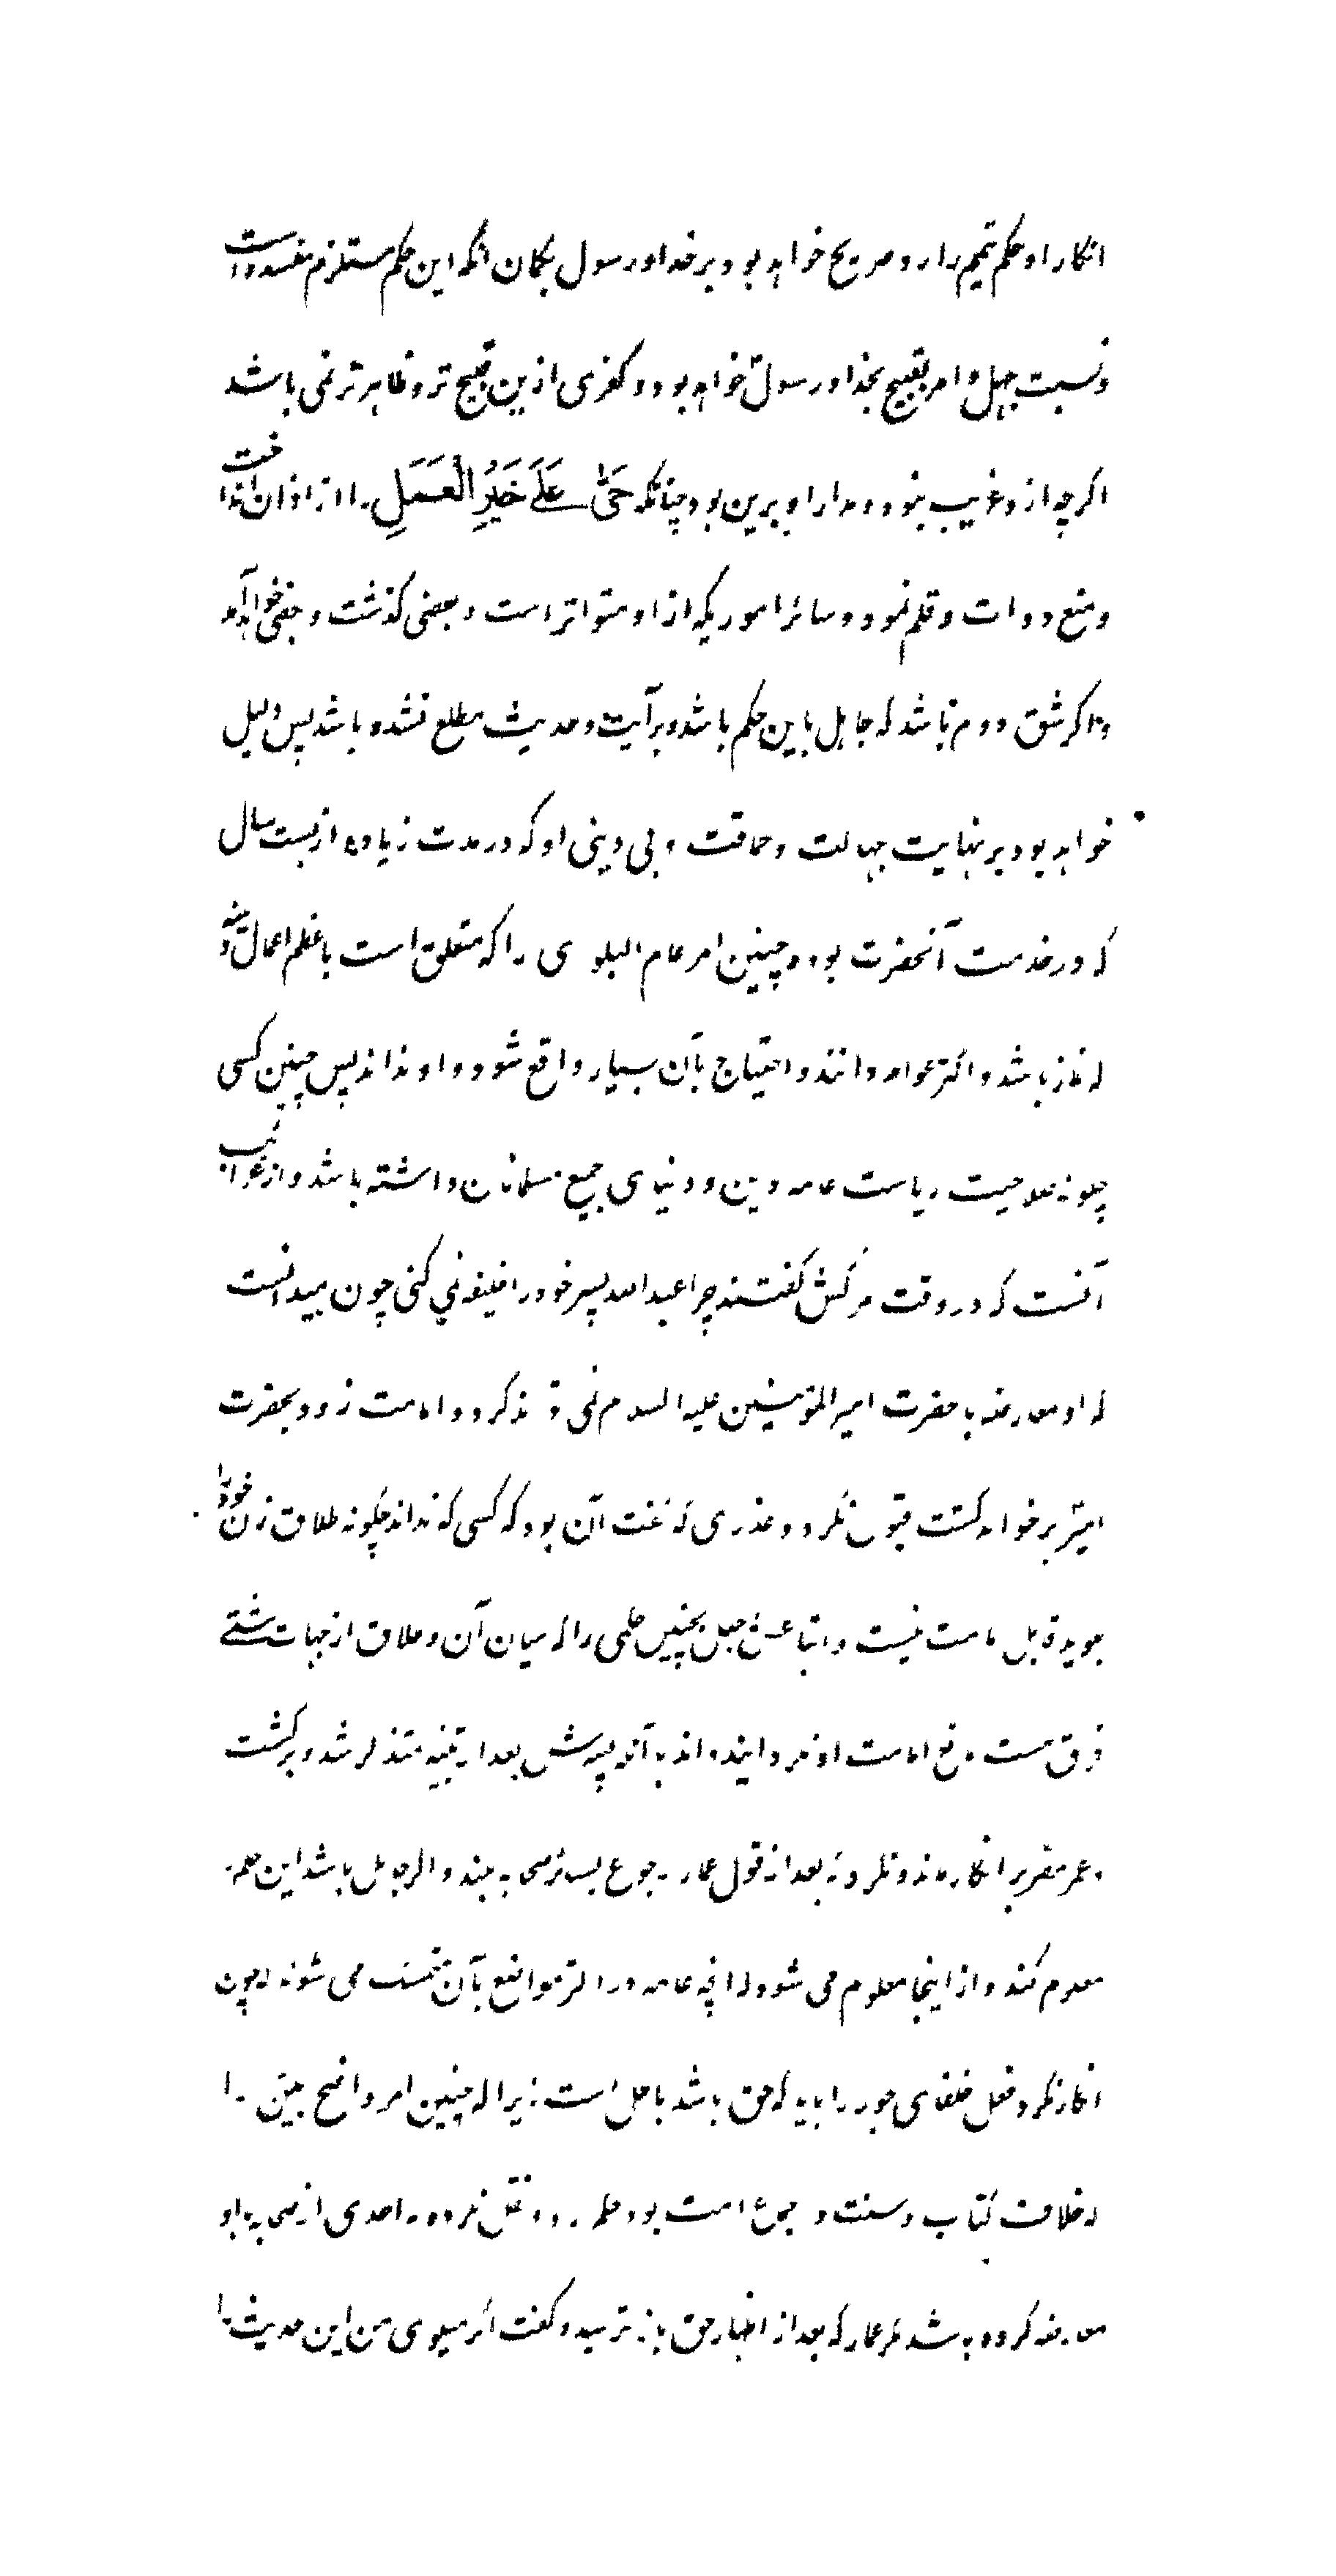 انکار او حکم تیمم را رد صریح خواهد بود بر خدا و رسول بگمان آنکه این حکم مستلزم مفسده است
و نسبت جهل و امر بقبیح بخدا و رسول خواهد بود و کفری ازین قبیح تر و ظاهر تر نمی باشد
اگرچه از و غریب نبود و مدار او برین بود چنانکه حَیَّ عَلَے خَیرِ الْعَمَلِ را از اذان انداخت
و منع دوات و قلم نمود و سائر اموریکه از او متواتر است و بعضی گذشت و بعضی خواهد آمد
و اگر شق دوم باشد که جاهل باین حکم باشد و بر آیت و حدیث مطلع نشده باشد پس دلیل
خواهد بود بر نهایت جهالت و حماقت و بی دینی او که در مدت زیاده از بیست سال
که در خدمت آنحضرت بوده چنین امر عام البلوی را که متعلق است باعظم اعمال دینیه
که نماز باشد و اکثر عوام دانند و احتیاج بآن بسیار واقع شود و او نداند پس چنین کسی
چگونه صلاحیت ریاست عامه دین و دنیای جمیع مسلمانان داشته باشد و از غرایب
آنست که در وقت مرگش گفتند چرا عبدالله پسر خود را خلیفه نمی کنی چون میدانست
که او معارضه با حضرت امیر المؤمنین علیه السلام نمی تواند کرد و امامت زود بحضرت
امیر بر خواهد گشت قبول نکرد و عذری که گفت آن بود که کسی که نداند چگونه طلاق زن خود را
بگوید قابل امامت نیست و اتباعش جهل بچنین حکمی را که میان آن و طلاق از جهات شتے
فرق هست مانع امامت او نمردانیده اند با آنکه پسرش بعد از تنبیه متذکر شد و برگشت
و عمر مقر بر انکار ماند و نکرد که بعد از قول عمار رجوع بسائر صحابه نماید و اگر جاهل باشد این حکم را
معلوم کند و از اینجا معلوم می شود که آنچه عامه در اکثر مواضع بآن متمسک می شوند که چون
انکار نکرد فعل خلفای جور را باید که حق باشد باطل است زیرا که چنین امر واضح بیّن را
که خلاف کتاب و سنت و اجماع امت بود حکم کرد و نقل نکرده اند احدی از صحابه با او
معارضه کرده باشد مگر عمار که بعد از اظهار حق باز ترسید و گفت اگر میگوی من این حدیث را